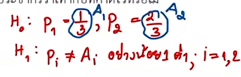 H₀: P₁ = 1/3 A₁, P₂ = 2/3 A₂
H₁: Pᵢ ≠ Aᵢ อย่างน้อย 1 ค่า, i = 1,2